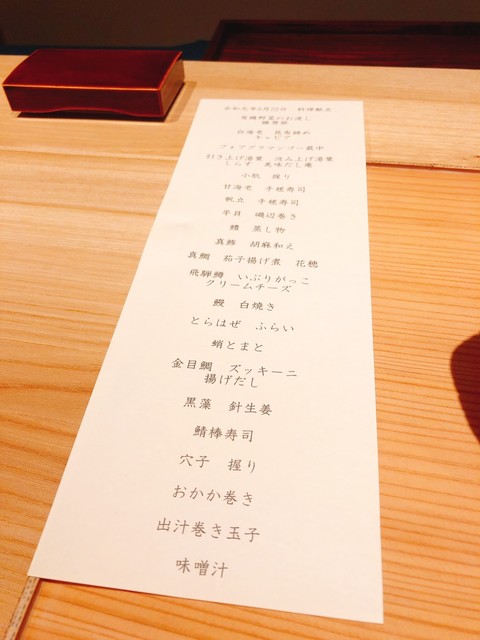 令和元年6月22日　料理献立
有機野菜のお浸し
白海老　昆布締め
キャビア
フォアグラマンゴー最中
引き上げ湯葉　汲み上げ湯葉
しらす　美味だし庵
小肌　握り
甘海老　手毬寿司
帆立　手毬寿司
平目　磯辺巻き
蒸し物
真鯵　胡麻和え
真鯛　茄子揚げ煮　花穂
飛騨鱒　いぶりがっこ
クリームチーズ
鰻　白焼き
とらはぜ　ふらい
蛸とまと
金目鯛　ズッキーニ
揚げだし
黒藻　針生姜
鯖棒寿司
穴子　握り
おかか巻き
出汁巻き玉子
味噌汁